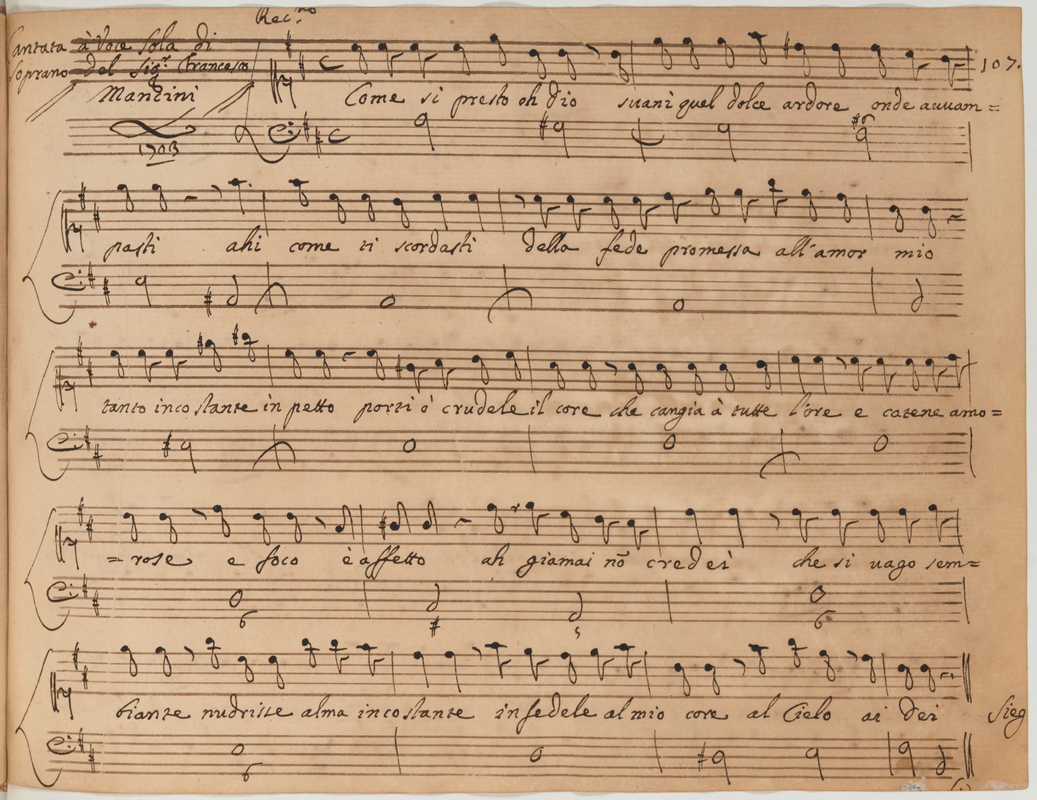 Rec.no
Cantata à Voce Sola di
Soprano del Sig.r Francesco
Mancini
1703
107.
Come si presto oh dio suani quel dolce ardore onde auuam=
pasti ahi come ti scordasti della fede promessa all'amor mio
tanto incostante in petto porti ò crudele il core che cangia à tutte l'ore e catene amo=
=rose e foco è affetto ah giamai nõ credei che si uago sem=
biante nudriste alma incostante infedele al mio core al Cielo ai Dei
Sieg